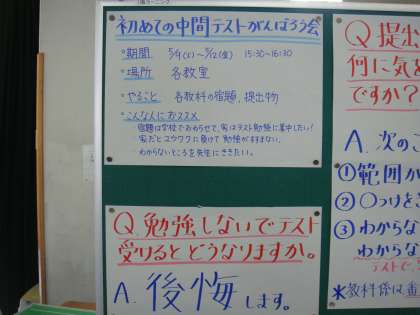 初めての中間テストがんばろう会
・期間 5/9(火)～5/12(金) 15:30～16:30
・場所 各教室
・やること 各教科の宿題、提出物
・こんな人におススメ
・宿題は学校でおわらせて、家はテスト勉強に集中したい!
・家だとユウワクに負けて勉強が進まない。
・わからないところを先生にききたい。
Q 勉強しないでテスト
受けるとどうなりますか。
A. 後悔します。
Q 提出
何に気を
ですか?
A. 次のこ
① 範囲か
② ○つけを
③ わからな
わからな
テストで
*教科係は